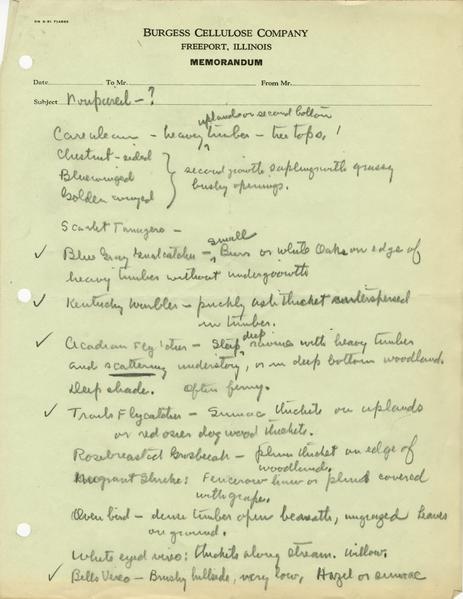 BURGESS CELLULOSE COMPANY
FREEPORT, ILLINOIS
MEMORANDUM
Date To Mr. From Mr.
Subject Nonpareil - ?
uplands or second bottom
Caerulean - heavy timber - tree tops, !
Chestnut-sided
Bluewinged
Golden winged
second growth saplings with grassy
bushy openings.
Scarlet Tanagers -
small
Blue Gray Gnatcatcher - Burr or White Oaks on edge of
heavy timber without undergrowth
Kentucky Warbler - prickly ash thicket interspersed
in timber.
deep
Acadian Fly'tcher - ravines with heavy timber
and scattering understory, or in deep bottom woodland.
Deep shade. Often ferny.
Traills Flycatcher - Sumac thickets on uplands
or red osier dogwood thickets.
Rosebreasted Grosbeak - plum thicket on edge of
woodland.
Migrant Shrike: Fencerow haw or plum covered
with grape.
Oven bird - dense timber open beneath, ungrazed leaves
on ground.
White eyed vireo: thickets along stream. Willow.
Bells Vireo - Brushy hillside, very low, Hazel or sumac